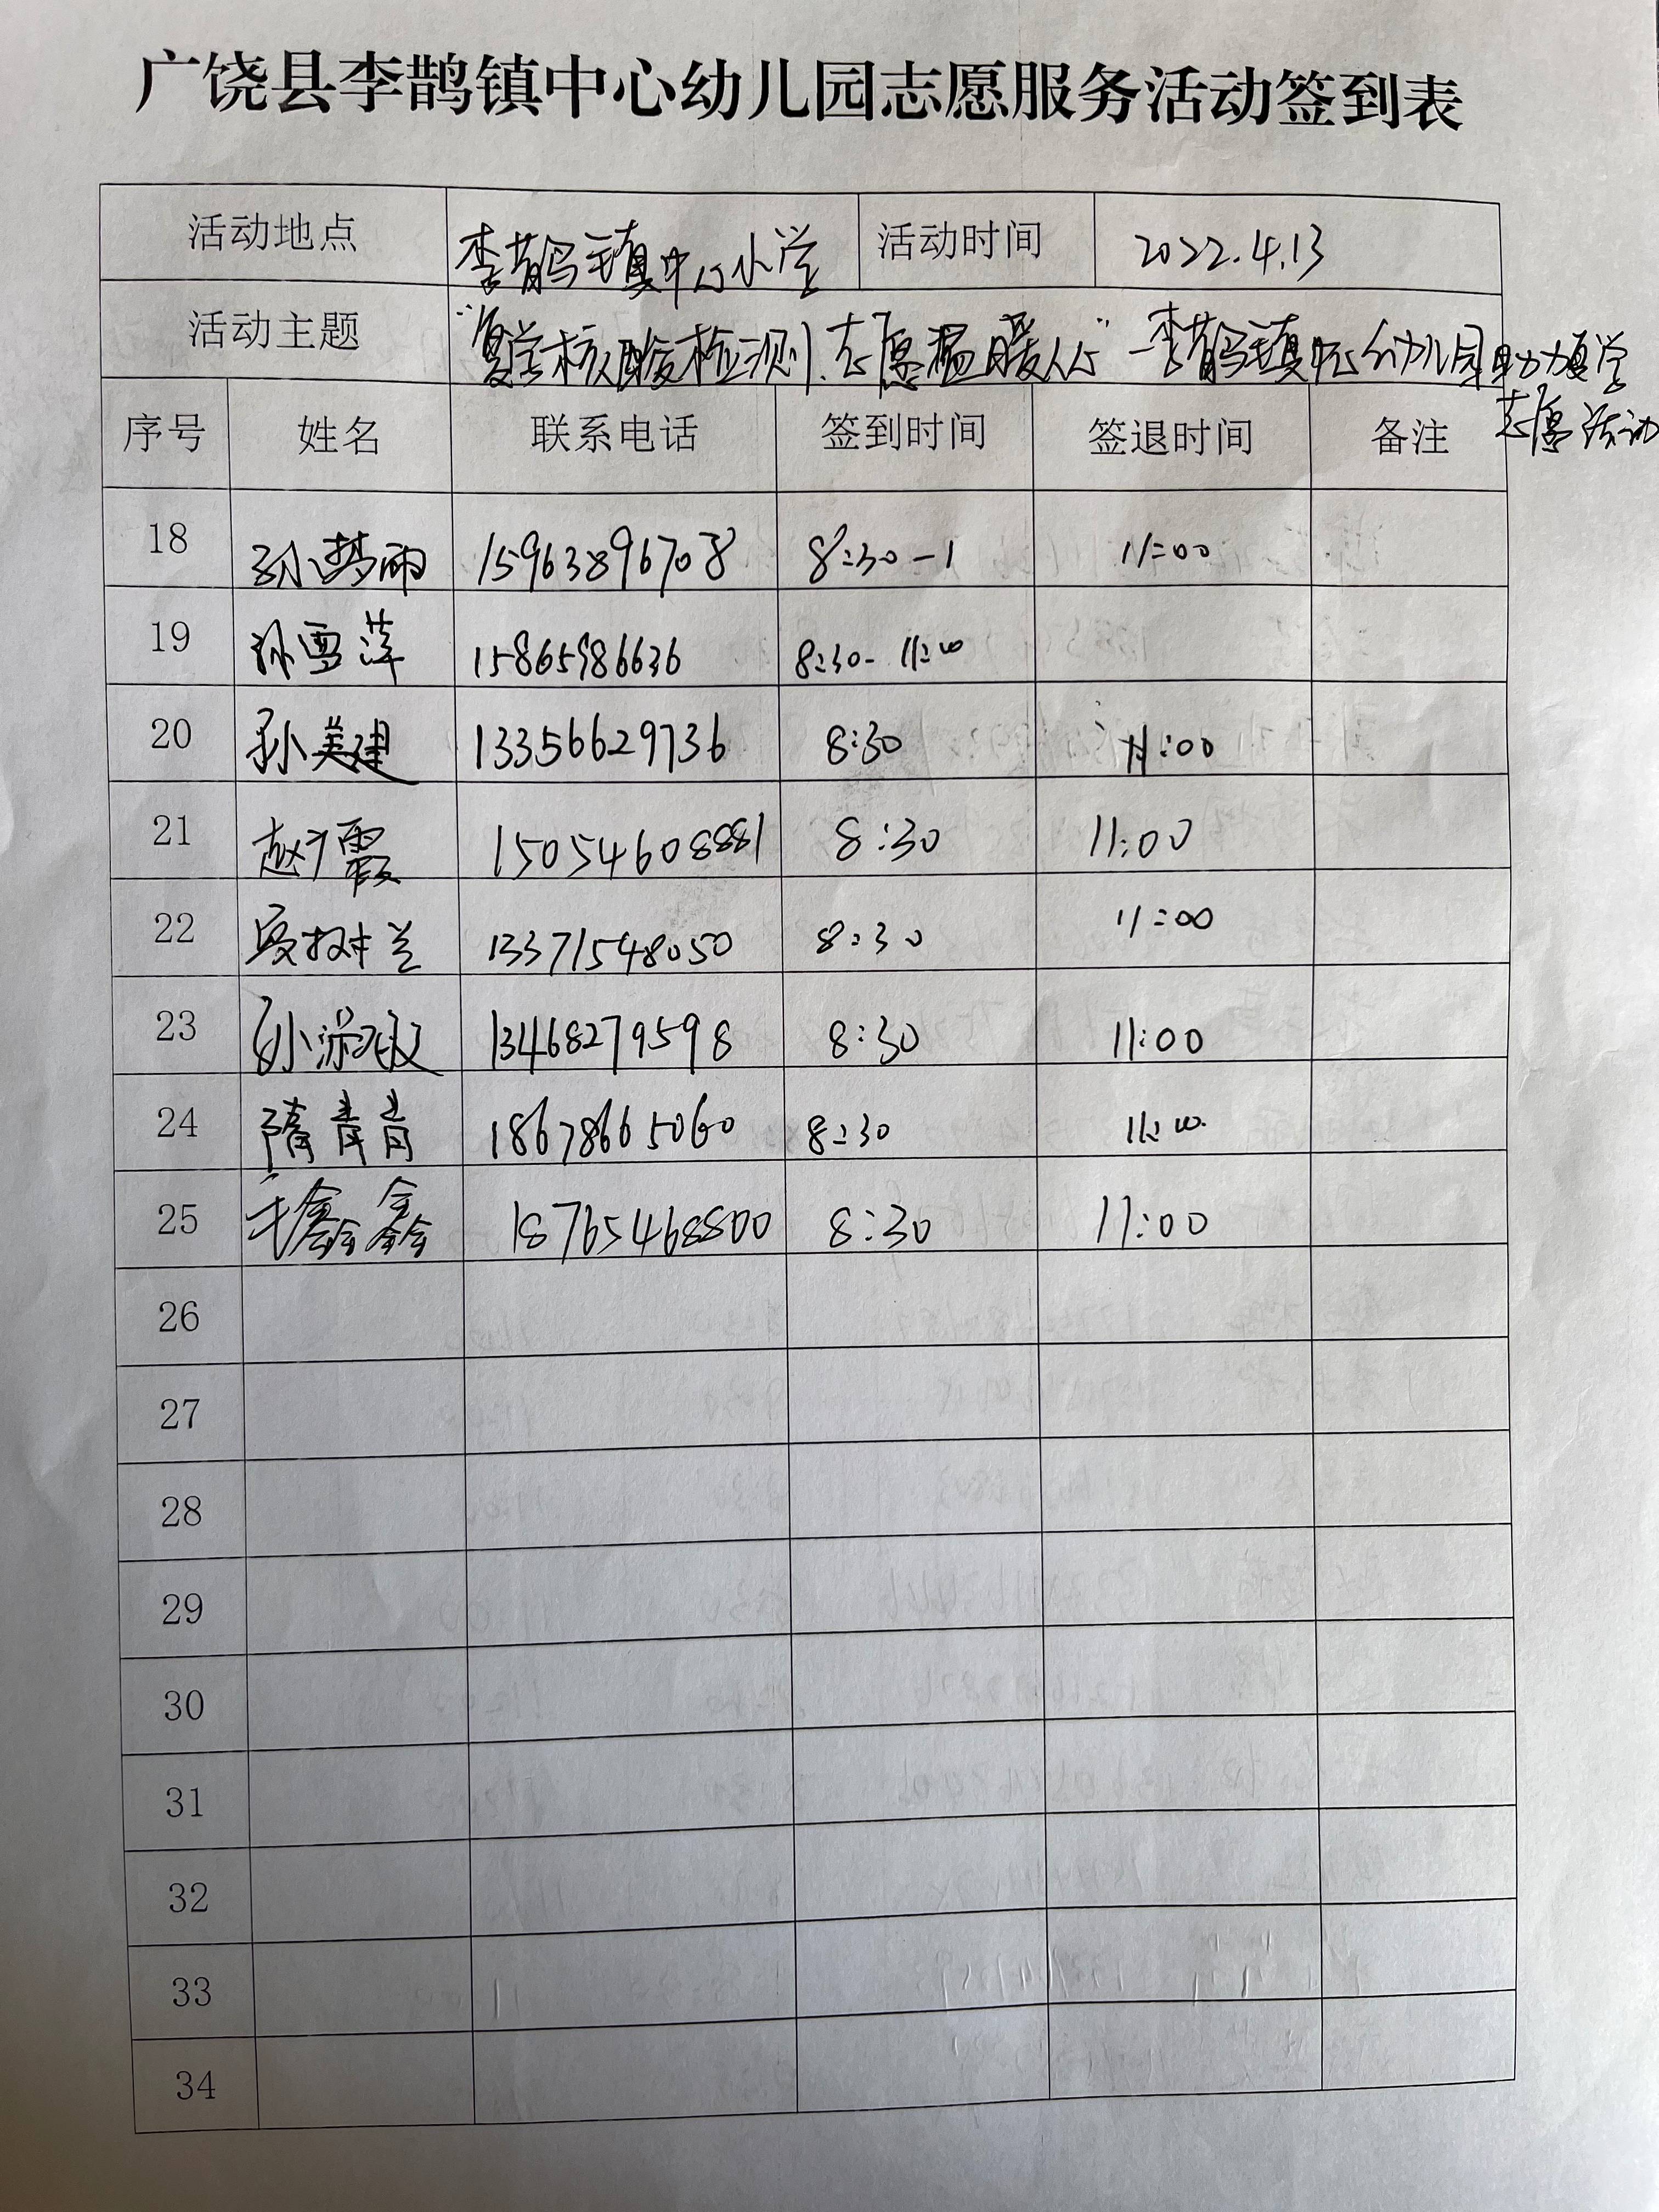 广饶县李鹊镇中心幼儿园志愿服务活动签到表
活动地点 李鹊镇中心小学 活动时间 2022.4.13
活动主题 “复学核酸检测,志愿温暖人心”—李鹊镇中心幼儿园助力复学
志愿活动
序号 姓名 联系电话 签到时间 签退时间 备注
18 孙梦雨 15963896708 8:30-1 11:00
19 孙雪萍 15865986636 8:30-11:00
20 孙美建 13356629736 8:30 11:00
21 赵广霞 15054608881 8:30 11:00
22 树兰 13371548050 8:30 11:00
23 孙淑敏 13468279598 8:30 11:00
24 隋青青 18678665060 8:30 11:00
25 鑫鑫 18765468800 8:30 11:00
26
27
28
29
30
31
32
33
34